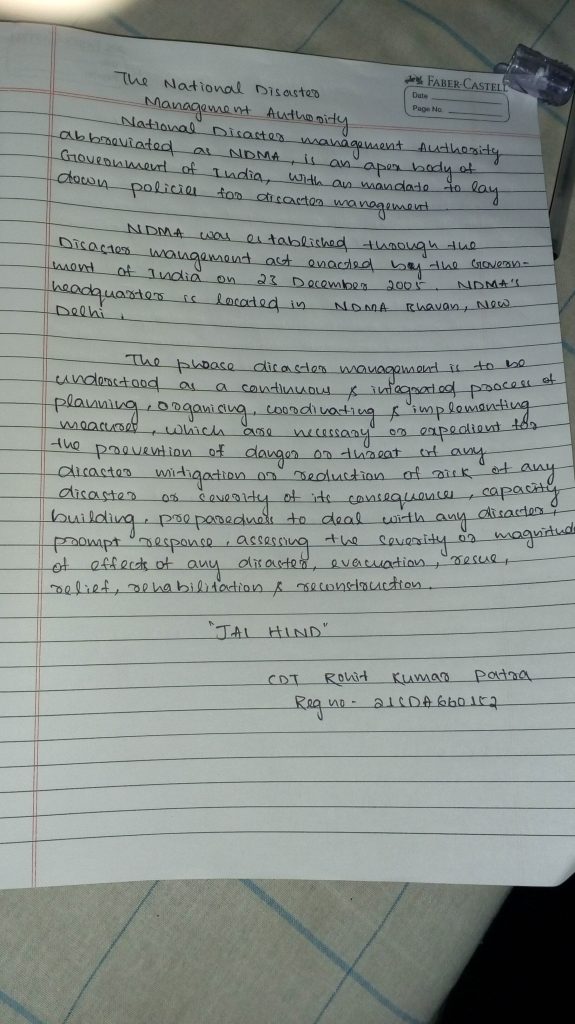 FABER-CASTELL
Date
Page No.
The National Disaster
Management Authority
National Disaster management Authority
abbreviated as NDMA, is an apex body of
Government of India, with an mandate to lay
down policies for disaster management.
NDMA was established through the
Disaster mangement act enacted by the Govern-
ment of India on 23 December 2005. NDMA's
headquarter is located in NDMA Bhavan, New
Delhi.
The phrase disaster management is to be
understood as a continuous & integrated process of
planning, organising, coordinating & implementing
measures, which are necessary or expedient for
the prevention of danger or threat of any
disaster mitigation or reduction of risk of any
disaster or severity of its consequences, capacity
building, preparedness to deal with any disaster,
prompt response, assessing the severity or magnitude
of effects of any disaster, evacuation, resue,
relief, rehabilitation & reconstruction.
"JAI HIND"
CDT Rohit Kumar Patra
Reg no-